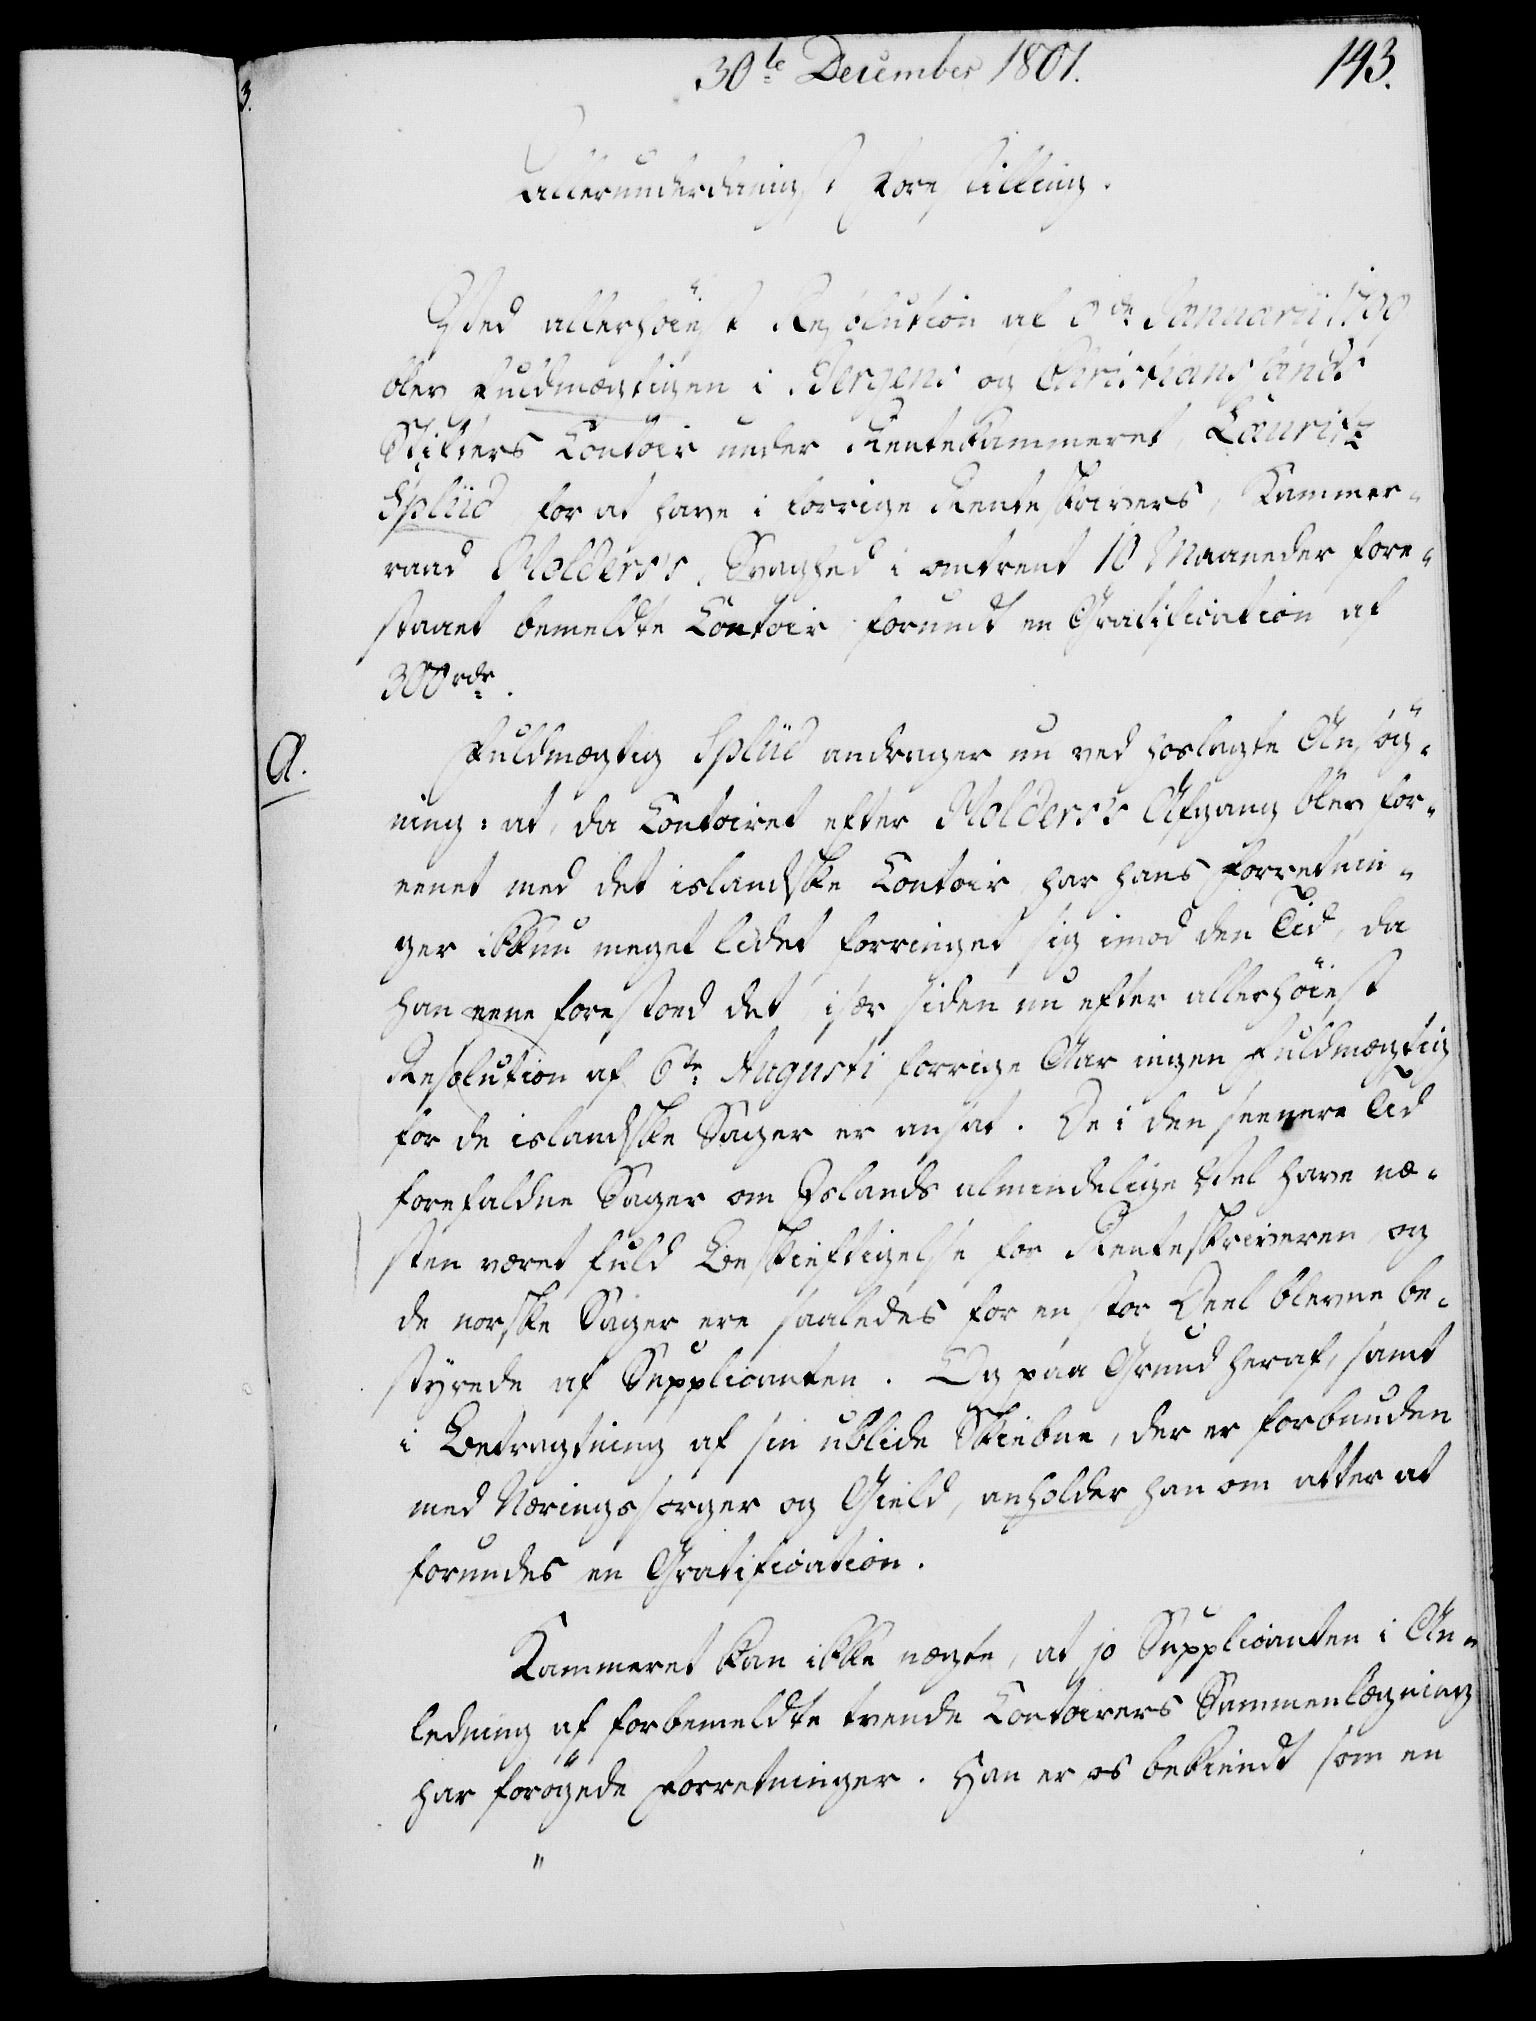 30te December 1801.
193.
3.
Allerunderdanigst Forestilling.
Ved allerhöiest Resolution af Januarii
blev Fuldmægtigen i Bergens og Christiansands
Stifters Contoir under Rentekammeret, Lauritz
Splüd for at have i forrige Renteskrivers, Kammer-
raad Molders's, Svaghed i omtrent 10 Maaneder fore-
staaet bemeldte Contoir, forundt en Gratification af
300rdr.
A.
Fuldmægtig Splüd andrager nu ved hoslagte Ansög-
ning: at, da Contoiret efter Molders's Afgang blev for-
eenet med det islandske Contoir, har hans Forretnin-
ger ikkun meget lidet forringet sig imod den Tid, da
han eene forestoed det, især siden nu efter allerhöiest
Resolution af 6te Augusti forrige Aar ingen Fuldmægtig
for de islandske Sager er ansat. De i den seenere Tid
forefaldne Sager om Islands almindelige Vel have næ-
sten været fuld Beskieftigelse for Renteskriveren, og
de norske Sager ere saaledes for en stor Deel blevne be-
styrede af Supplicanten. Og paa Grund heraf, samt
i Betragtning af sin ublide Skiebne, der er forbunden
med Næringssorger og Gield, anholder han om atter at
forundes en Gratification.
Kammeret kan ikke nægte, at jo Supplicanten i An-
ledning af forbemeldte tvende Contoirers Sammenlægning
har forögede Forretninger. Han er os bekiendt som en
"